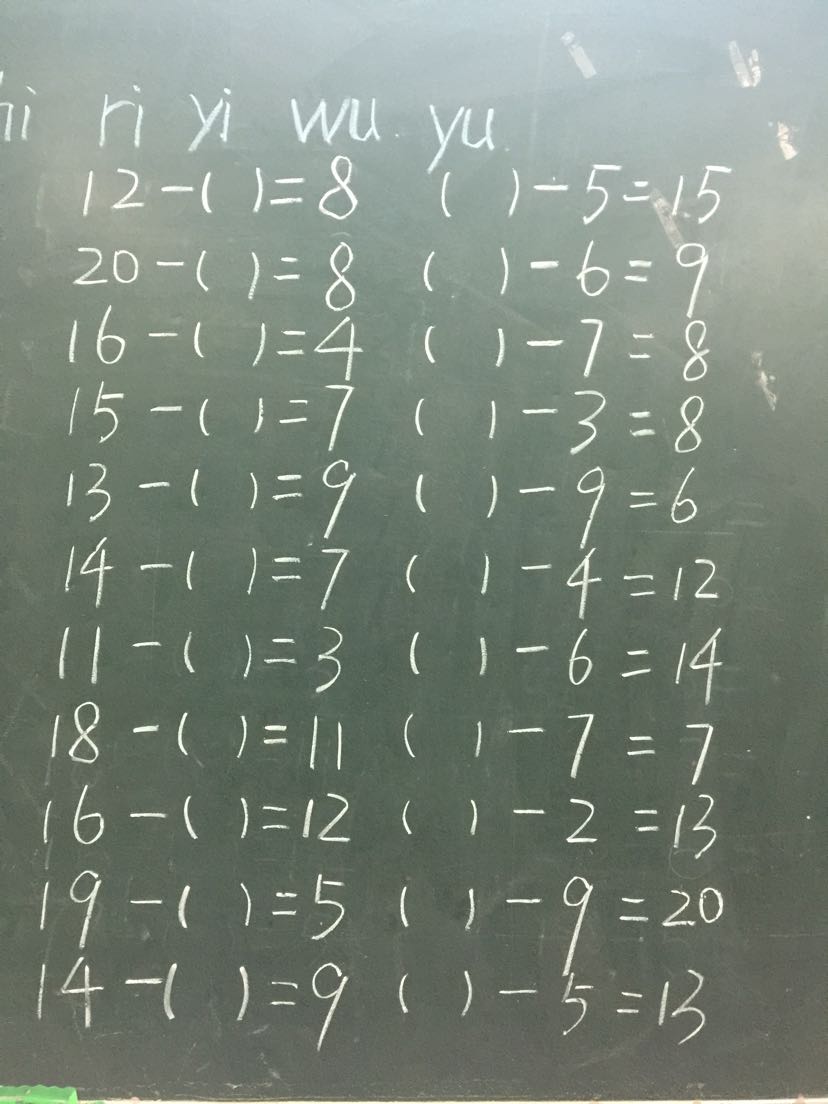 hi ri yi wu yu
12-( )=8 ( )-5=15
20-( )=8 ( )-6=9
16-( )=4 ( )-7=8
15-( )=7 ( )-3=8
13-( )=9 ( )-9=6
14-( )=7 ( )-4=12
11-( )=3 ( )-6=14
18-( )=11 ( )-7=7
16-( )=12 ( )-2=13
19-( )=5 ( )-9=20
14-( )=9 ( )-5=13